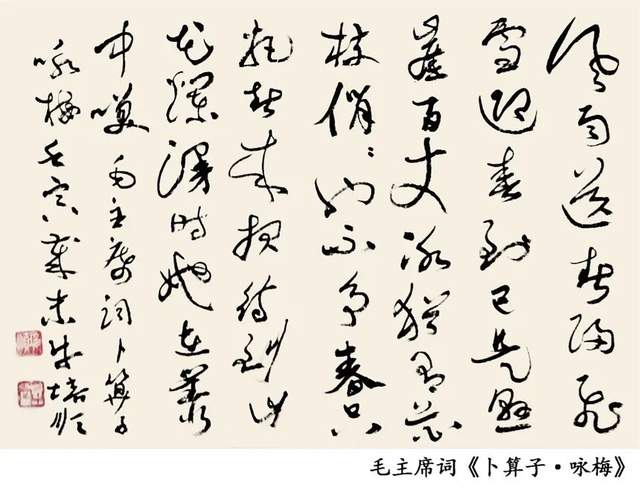 风雨送春归飞
雪迎春到已是悬
崖百丈冰犹有花
枝俏〻也不争春只
把春来报待到山
花烂漫时她在丛
中笑 毛主席词卜算子
咏梅壬寅岁末朱培顺
毛主席词《卜算子·咏梅》